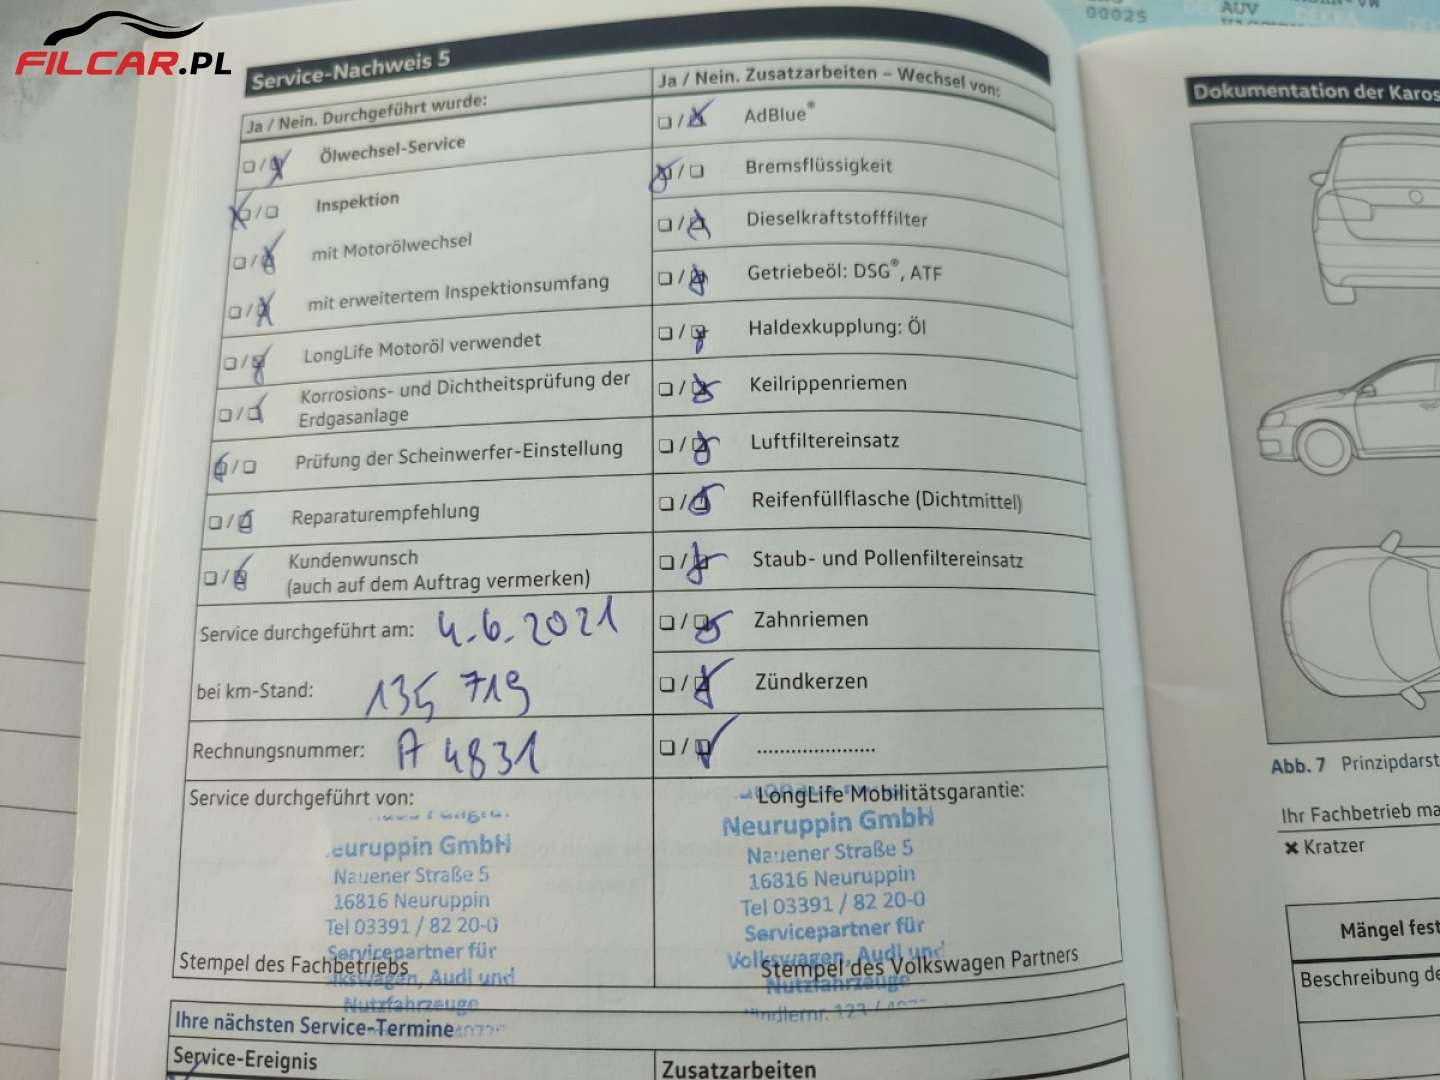 FILCAR.PL
00025
AUV
Service-Nachweis 5
Ja / Nein. Durchgeführt wurde:
Ölwechsel-Service
Inspektion
mit Motorölwechsel
mit erweitertem Inspektionsumfang
LongLife Motoröl verwendet
Korrosions- und Dichtheitsprüfung der
Erdgasanlage
Prüfung der Scheinwerfer-Einstellung
Reparaturempfehlung
Kundenwunsch
(auch auf dem Auftrag vermerken)
Service durchgeführt am: 4.6.2021
bei km-Stand: 135 719
Rechnungsnummer: A 4831
Service durchgeführt von:
euruppin GmbH
Nauener Straße 5
16816 Neuruppin
Tel 03391 / 82 20-0
Servicepartner für
Stempel des Fachbetriebs
kswagen, Audi und
Nutzfahrzeuge
Ja / Nein. Zusatzarbeiten – Wechsel von:
AdBlue®
Bremsflüssigkeit
Dieselkraftstofffilter
Getriebeöl: DSG®, ATF
Haldexkupplung: Öl
Keilrippenriemen
Luftfiltereinsatz
Reifenfüllflasche (Dichtmittel)
Staub- und Pollenfiltereinsatz
Zahnriemen
Zündkerzen
.....................
LongLife Mobilitätsgarantie:
Neuruppin GmbH
Nauener Straße 5
16816 Neuruppin
Tel 03391 / 82 20-0
Servicepartner für
Volkswagen, Audi und
Stempel des Volkswagen Partners
Nutzfahrzeuge
Ihre nächsten Service-Termine
Service-Ereignis
Zusatzarbeiten
Dokumentation der Karos
Abb. 7 Prinzipdarst
Ihr Fachbetrieb ma
✖ Kratzer
Mängel fest
Beschreibung de